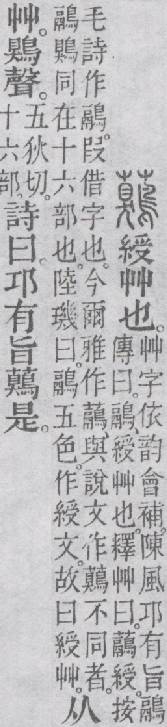 䕼綬艸也。艸字依韵會補。陳風卭有旨鷊。傳曰。鷊綬艸也。釋艸曰。虉綬。按
毛詩作鷊。叚借字也。今爾雅作虉。與說文作䕼不同者。鷊鶪同在十六部也。陸璣曰。鷊五色作綬文。故曰綬艸。从
艸。鶪聲。五狄切。十六部。詩曰。卭有旨䕼是。